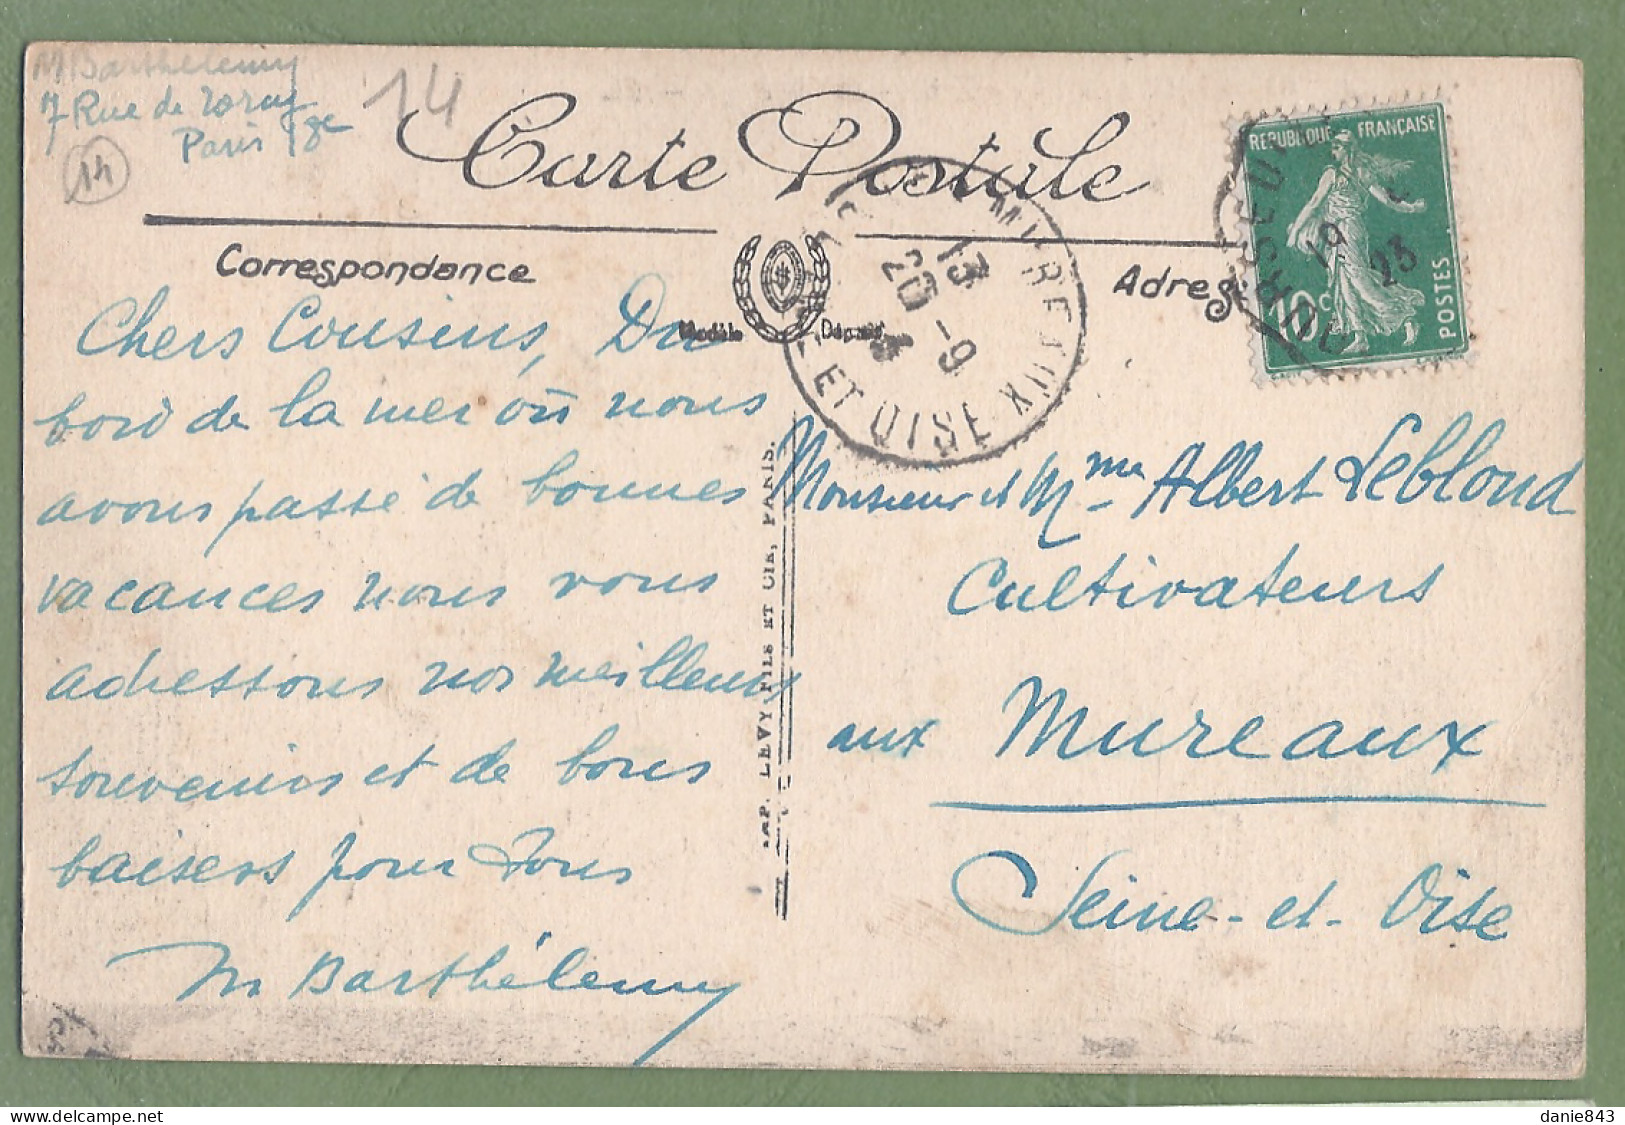 M Barthélemy
7 Rue de
Paris 18e
14
14
Carte Postale
Correspondance
Adresse
Modèle Déposé
RÉPUBLIQUE FRANÇAISE
10c
POSTES
COURSEUL
19
23
LES MUREAUX
13
20 -9
SEINE ET OISE
Chers Cousins, Du
bord de la mer où nous
avons passé de bonnes
vacances nous vous
adressons nos meilleurs
souvenirs et de bons
baisers pour tous
M Barthélemy
IMP. LEVY FILS ET CIE, PARIS.
Monsieur et Mme Albert Leblond
Cultivateurs
aux Mureaux
Seine-et-Oise
danie843